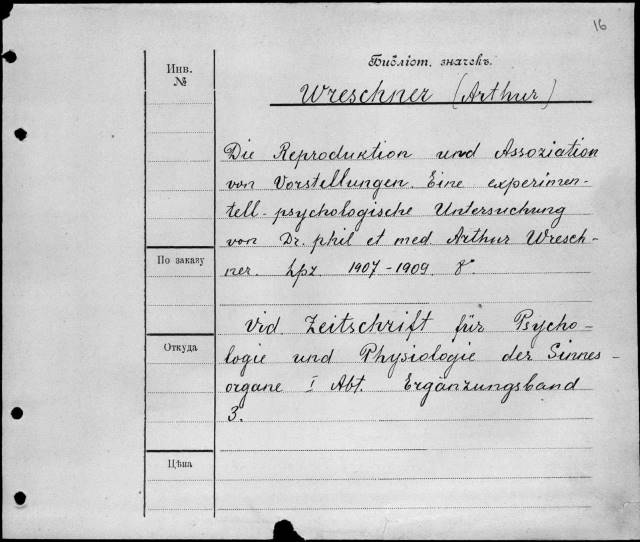 16
Библіот. значекъ.
Инв.
№
Wreschner (Arthur)
Die Reproduktion und Assoziation
von Vorstellungen. Eine experimen-
tell-psychologische Untersuchung
von Dr. phil et med. Arthur Wresch-
ner. Lpz. 1907-1909. 8°.
По заказу
Vid. Zeitschrift für Psycho-
logie und Physiologie der Sinnes-
organe I Abt. Ergänzungsband
3.
Откуда
Цѣна